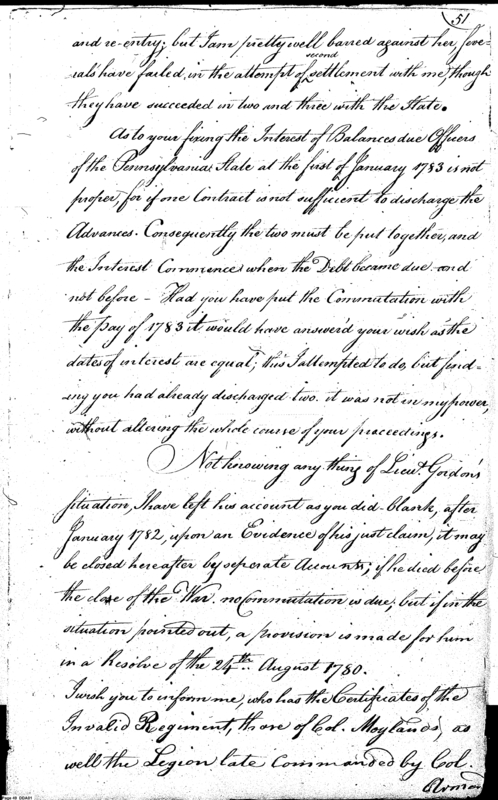 51
and re-entry; but I am pretty well barred against her, seve-
rals have failed in the attempt of second settlement with me, though
they have succeeded in two and three with the State.
As to your fixing the Interest of Balances due Officers
of the Pennsylvania State at the first of January 1783 is not
proper, for if one Contract is not sufficient to discharge the
Advances. Consequently the two must be put together, and
the Interest Commence when the Debt became due and
not before – Had you have put the Commutation with
the pay of 1783 it would have answer'd your wish as the
dates of interest are equal; this I attempted to do, but find-
ing you had already discharged two. it was not in my power,
without altering the whole course of your proceedings.
Not knowing any thing of Lieut. Gordon's
situation, I have left his account as you did blank, after
January 1782, upon an Evidence of his just claim, it may
be closed hereafter by seperate Accounts; if he died before
the close of the War no Commutation is due, but if in the
situation pointed out, a provision is made for him
in a Resolve of the 24th. August 1780.
I wish you to inform me, who has the Certificates of the
Invalid Regiment, those of Col. Moylands, as
well the Legion late Commanded by Col.
Armand